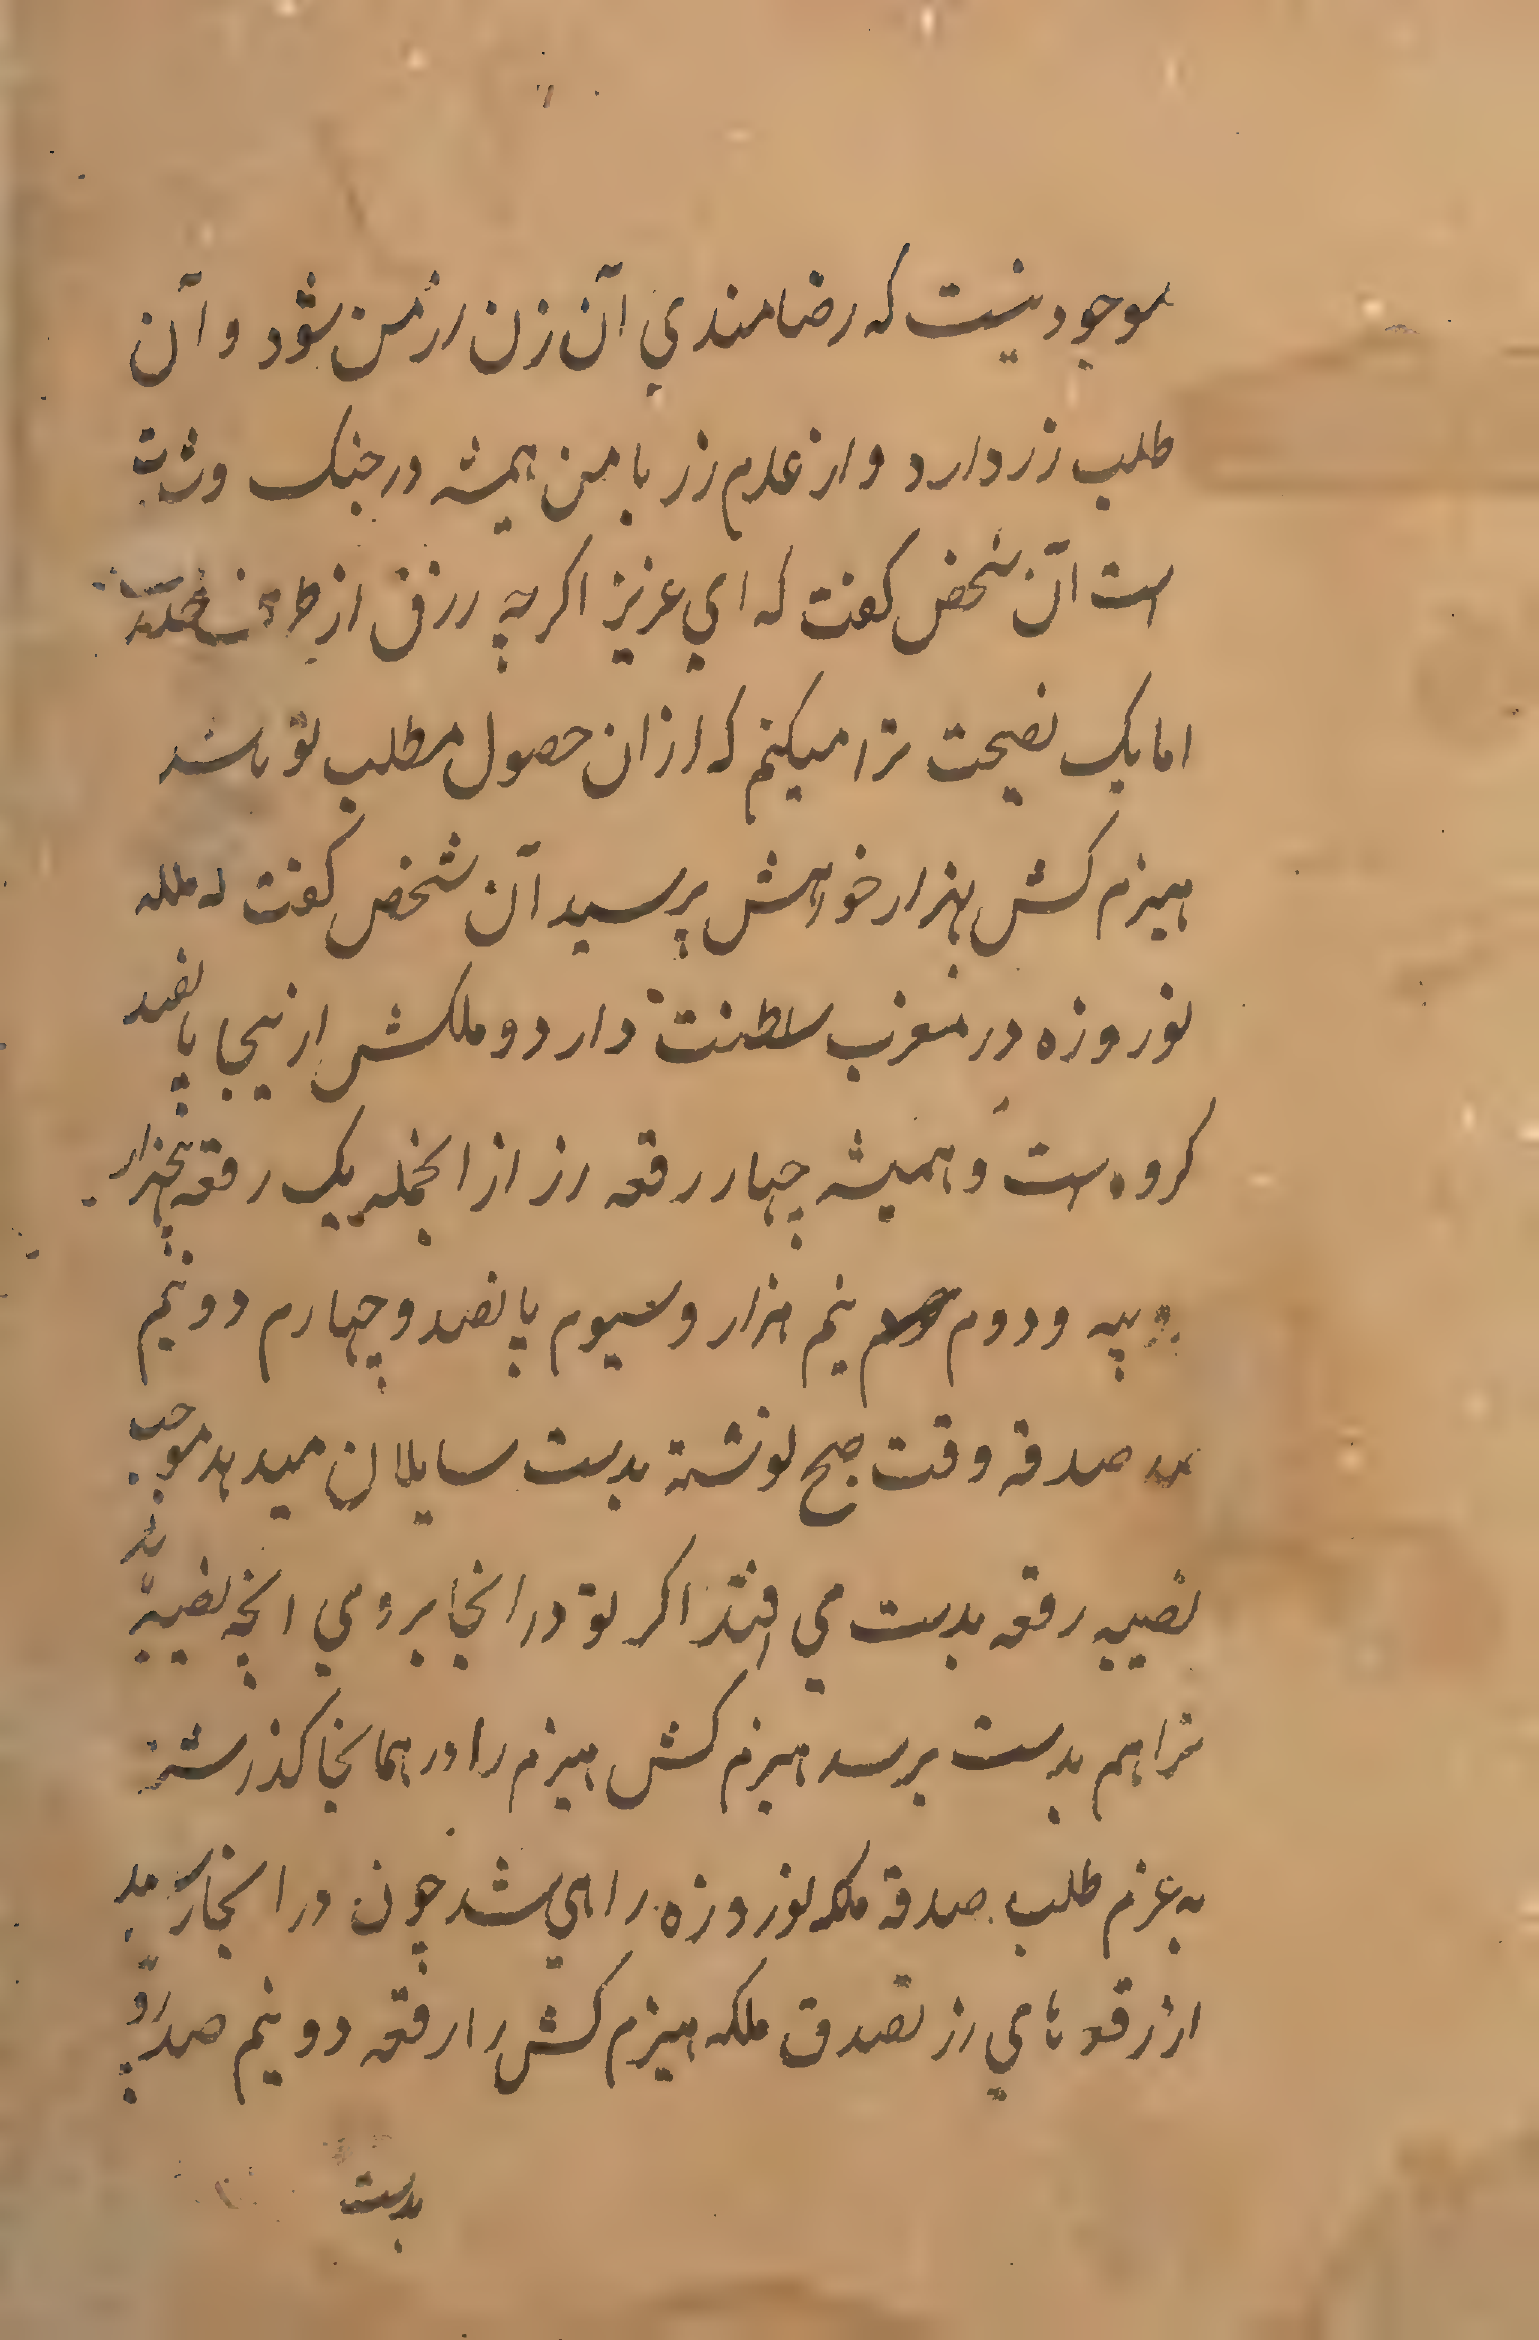 موجود نیست که رضامندي آن زن از من شود و آن
طلب زر دارد و از عدم زر با من همیشه در جنک و
است آن شخص کفت که اي عزیز اکرچه رزق از طرف
اما یک نصیحت ترا میکنم که از ان حصول مطلب تو باشد
هیزم کش بهزار خواهش پرسید آن شخص کفت که ملکه
نوروزه در مغرب سلطنت دارد و ملکش ازینجا پانصد
کروه است و همیشه چهار رقعه زر از انجمله یک رقعه پنجهزار
روپیه و دوم نیم هزار و سیوم پانصد و چهارم دو نیم
صد صدقه وقت صبح نوشته بدست سایلان میدهد موجب
نصیب رقعه بدست مي افتد اکر تو در انجا بروي انچه نصیبه
ترا هم بدست برسد هیزم کش هیزم را در همانجا کذاشته
به عزم طلب صدقه ملکه نوروزه راهي شد چون در انجا رسید
از رقعهامي زر تصدق ملکه هیزم کش را رقعه دو نیم صد
بدست